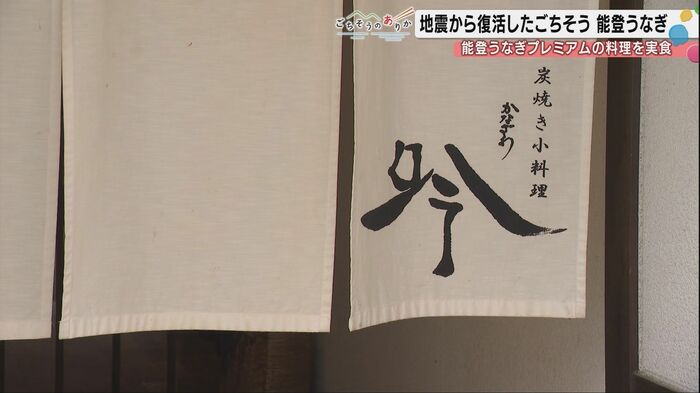 ごちそうのありか
地震から復活したごちそう 能登うなぎ
能登うなぎプレミアムの料理を実食
炭焼き小料理
かなざわ
吟